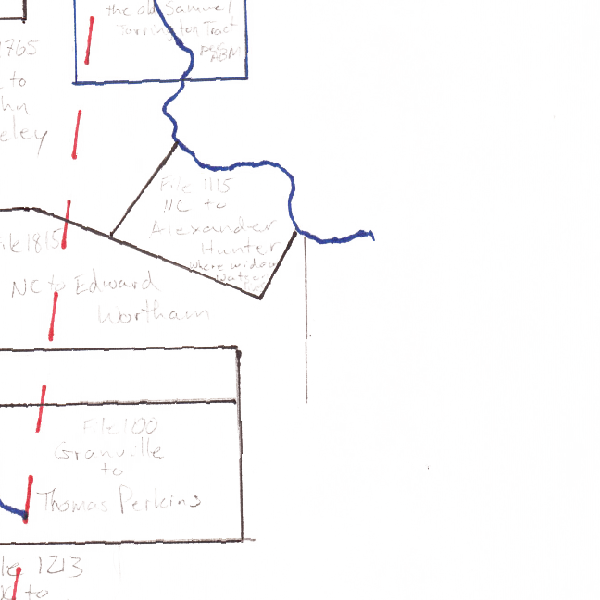 the old Samuel
Torrington Tract
1765
to
File 1115
NC to
Alexander
Hunter
where widow
File 1815
NC to Edward
Wortham
File 100
Granville
to
Thomas Perkins
1213
to